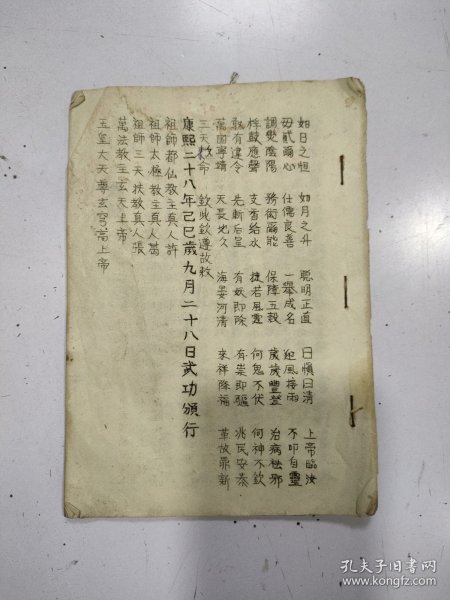 如日之恒 如月之升 聰明正直 曰慎曰清 上帝臨汝
毋貳爾心 仕儒良善 一舉成名 迎風接雨 不叩自靈
調燮陰陽 務衒爾能 保障五穀 歲歲豐登 治病祛邪
桴鼓應聲 支吾給水 捷若風雲 何鬼不伏 何神不欽
敢有違令 先斬后呈 有妖即除 有祟即驅 兆民安泰
萬國寧靖 天長地久 海晏河清 來祥降福 革故鼎新
三天敕命 欽此欽遵故敕
康熙二十八年己巳歲九月二十八日武功頒行
祖師都仙教主真人許
祖師太極教主真人葛
祖師三天扶教真人張
萬法教主玄天上帝
玉皇大天尊玄穹高上帝
孔夫子旧书网
www.kongfz.com